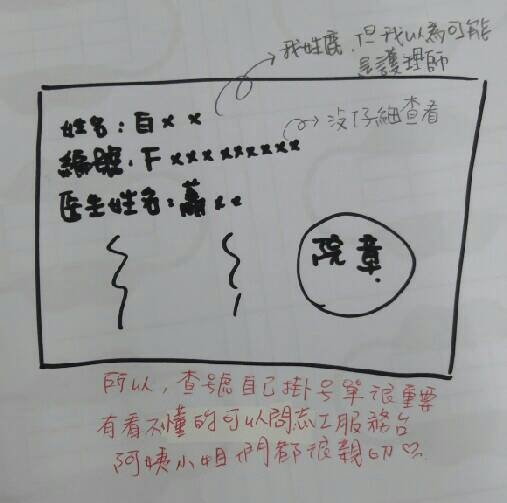 我姓鹿,但我以為可能
是護理師
姓名:白x x
沒仔細查看
編號.F xxxxxxxxx
医生姓名:蕭xx
院章
所以,查號自己掛号單很重要
有看不懂的可以問志工服務台
阿姨小姐們都很親切♡